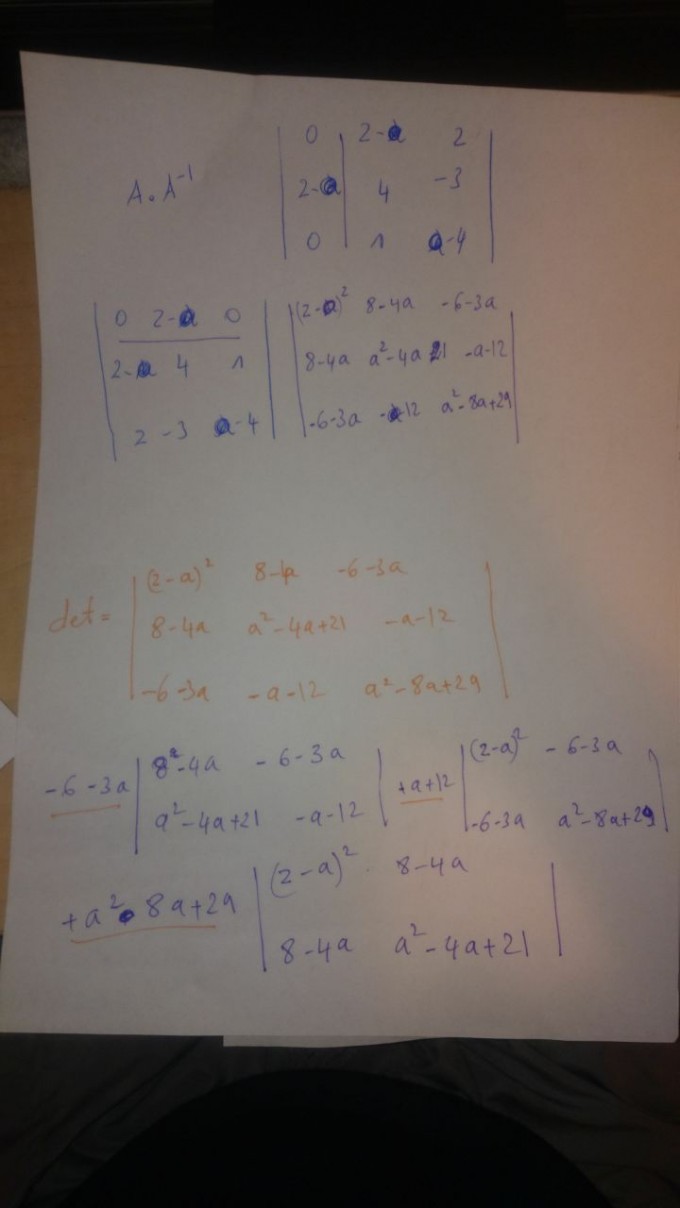 A.A⁻¹
| 0 2-a 2 |
| 2-a 4 -3 |
| 0 1 a-4 |
| 0 2-a 0 | | (2-a)² 8-4a -6-3a |
| 2-a 4 1 | | 8-4a a²-4a 21 -a-12 |
| 2 -3 a-4 | | -6-3a -a 12 a²-8a+29 |
det= | (2-a)² 8-4a -6-3a |
| 8-4a a²-4a+21 -a-12 |
| -6-3a -a-12 a²-8a+29 |
-6-3a | 8-4a -6-3a | +a+12 | (2-a)² -6-3a |
| a²-4a+21 -a-12 | | -6-3a a²-8a+29 |
+a²-8a+29 | (2-a)² 8-4a |
| 8-4a a²-4a+21 |